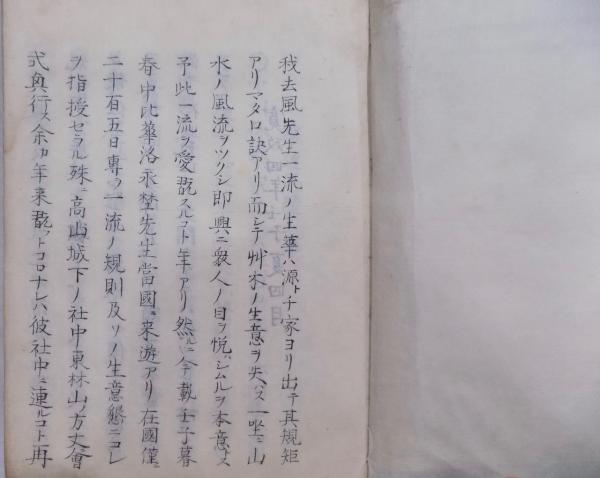 我去風先生一流ノ生華ハ源ト千家ヨリ出テ其規矩
アリマタ口訣アリ而シテ艸木ノ生意ヲ失ハス一坐ニ山
水ノ風流ヲツクシ即興ニ衆人ノ目ヲ悦ハシムルヲ本意トス
予此一流ヲ愛翫スルコト年アリ然ルニ今載壬子暮
春中比華洛永埜先生當國ニ来遊アリ在國僅ニ
二十有五日専ラ一流ノ規則及ソノ生意懇ニコレ
ヲ指授セラル殊ニ高山城下ノ社中東林山ノ方丈會
式興行ス余カ年来翫フトコロナレハ彼社中ニ連ルコト再